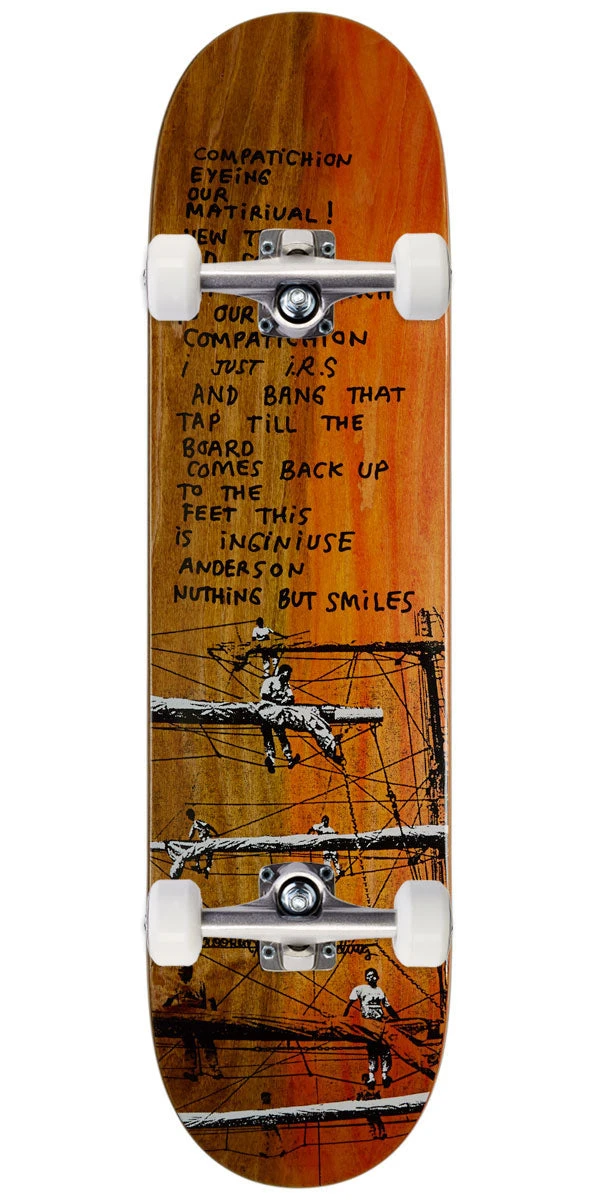 COMPATiCHiON
EYEiNG
OUR
MATiRiUAL!
NEW
OUR
COMPATiCHiON
i JUST i.R.S
AND BANG THAT
TAP TiLL THE
BOARD
COMES BACK UP
TO THE
FEET THiS
iS iNGiNiUSE
ANDERSON
NUTHiNG BUT SMiLES